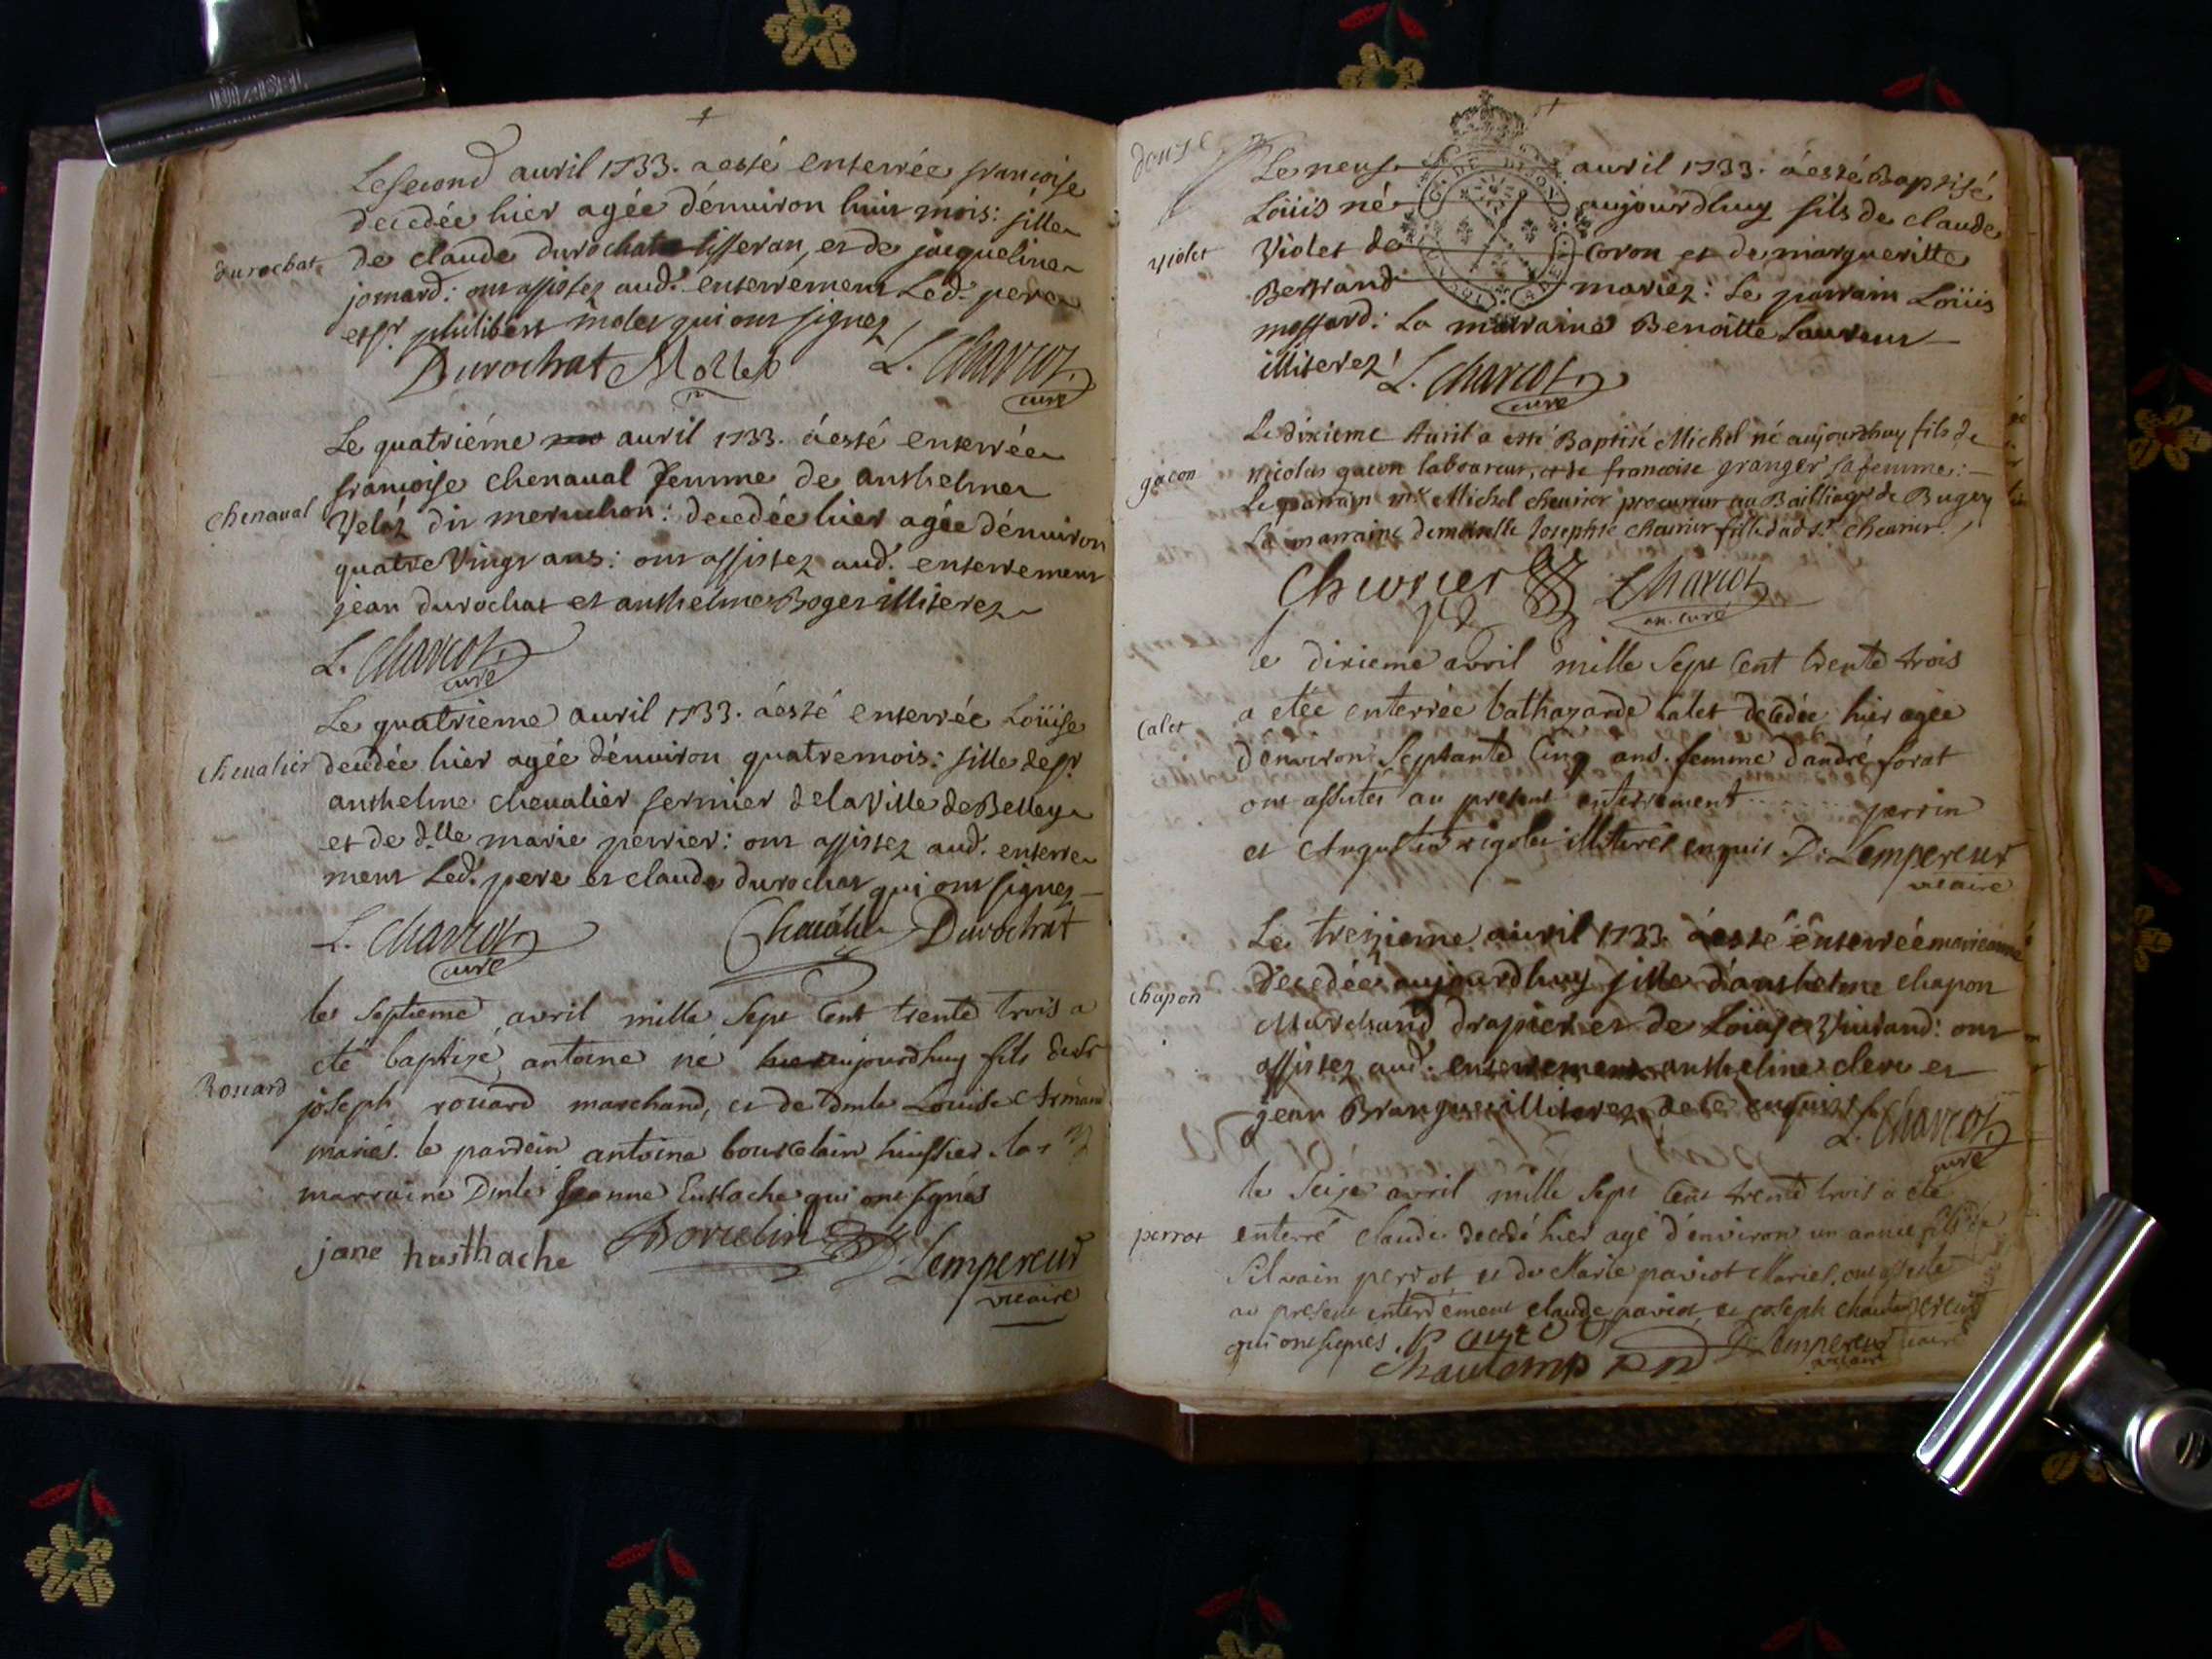 Le second avril 1733. a esté enterrée francoise
decedée hier agée d'énuiron huit mois: fille
durochat
de claude durochat tisseran, et de jacqueline
jomard: ont assistez aud. enterrement Led. pere
et sr. philibert molet qui ont signez
Durochat Mollet L. Charcot
curé
Le quatriéme avril 1733. a esté enterrée
francoise chenaual femme de anthelme
chenaual
Velat dit meruchon: decedée hier agée d'énuiron
quatre Vingt ans: ont assistez aud. enterrement
jean durochat et anthelme Boget illiterez
L. Charcot
curé
Le quatrieme auril 1733. a esté enterrée Loüise
cheualier
decedée hier agée d'énuiron quatre mois: fille de sr.
anthelme cheualier fermier de la Ville de Belley
et de dlle marie perrier: ont assistez aud. enterre
ment Led. pere et claude durochat qui ont signez
L. Charcot Durochat
curé
le septieme avril mille sept cent trente trois a
eté baptize antoine né aujourdhuy fils de sr
Rouard
joseph rouard marchand, et de dmle Louise
mariés. le parrein antoine huissier la
marraine Dmle jeanne Eustache qui ont signés
jane husthache Lempereur
vicaire
douze
Le neuf avril 1733. a esté Baptisé
Loüis né aujourdhuy fils de claude
violet
Violet de Coron et de margueritte
Bertrand mariez: Le parrain Loüis
mossard: La marraine Benoitte Laurent
illiterez L. Charcot
curé
Le dixieme Avril a esté Baptisé Michel né aujourdhuy fils de
gacon
nicolas gacon laboureur, et de francoise granger sa femme:
Le parrain mr. Michel cheurier procureur au Bailliage de Bugey
La marraine demoiselle Josephte cheurier fille dud sr. cheurier.
Chevrier Charcot
curé
le dixieme avril mille sept cent trente trois
Calet
a etée enterrée balthazarde Calet decedée hier agée
d'environ septante cinq ans. femme d'andré forat
ont assistés au present enterrement perrin
et Augustin rigolet illiterés enquis D. Lempereur
vicaire
Le treizieme auril 1733. a esté enterrée marieanne
decedée aujourdhuy fille d'anthelme chapon
chapon
Marchand drapier et de Loüise Viutand: ont
assistez aud. enterrement anthelme clerc et
jean Brangue illiterez de ce enquis L. Charcot
curé
le seize avril mille sept cent trente trois a eté
perrot
enterré claude decedé hier agé d'environ un année fils de
Silvain perrot et de Marie pariot Mariés, ont assisté
au present enterrement claude pariot, et joseph
qui ont signés. Lempereur
vicaire